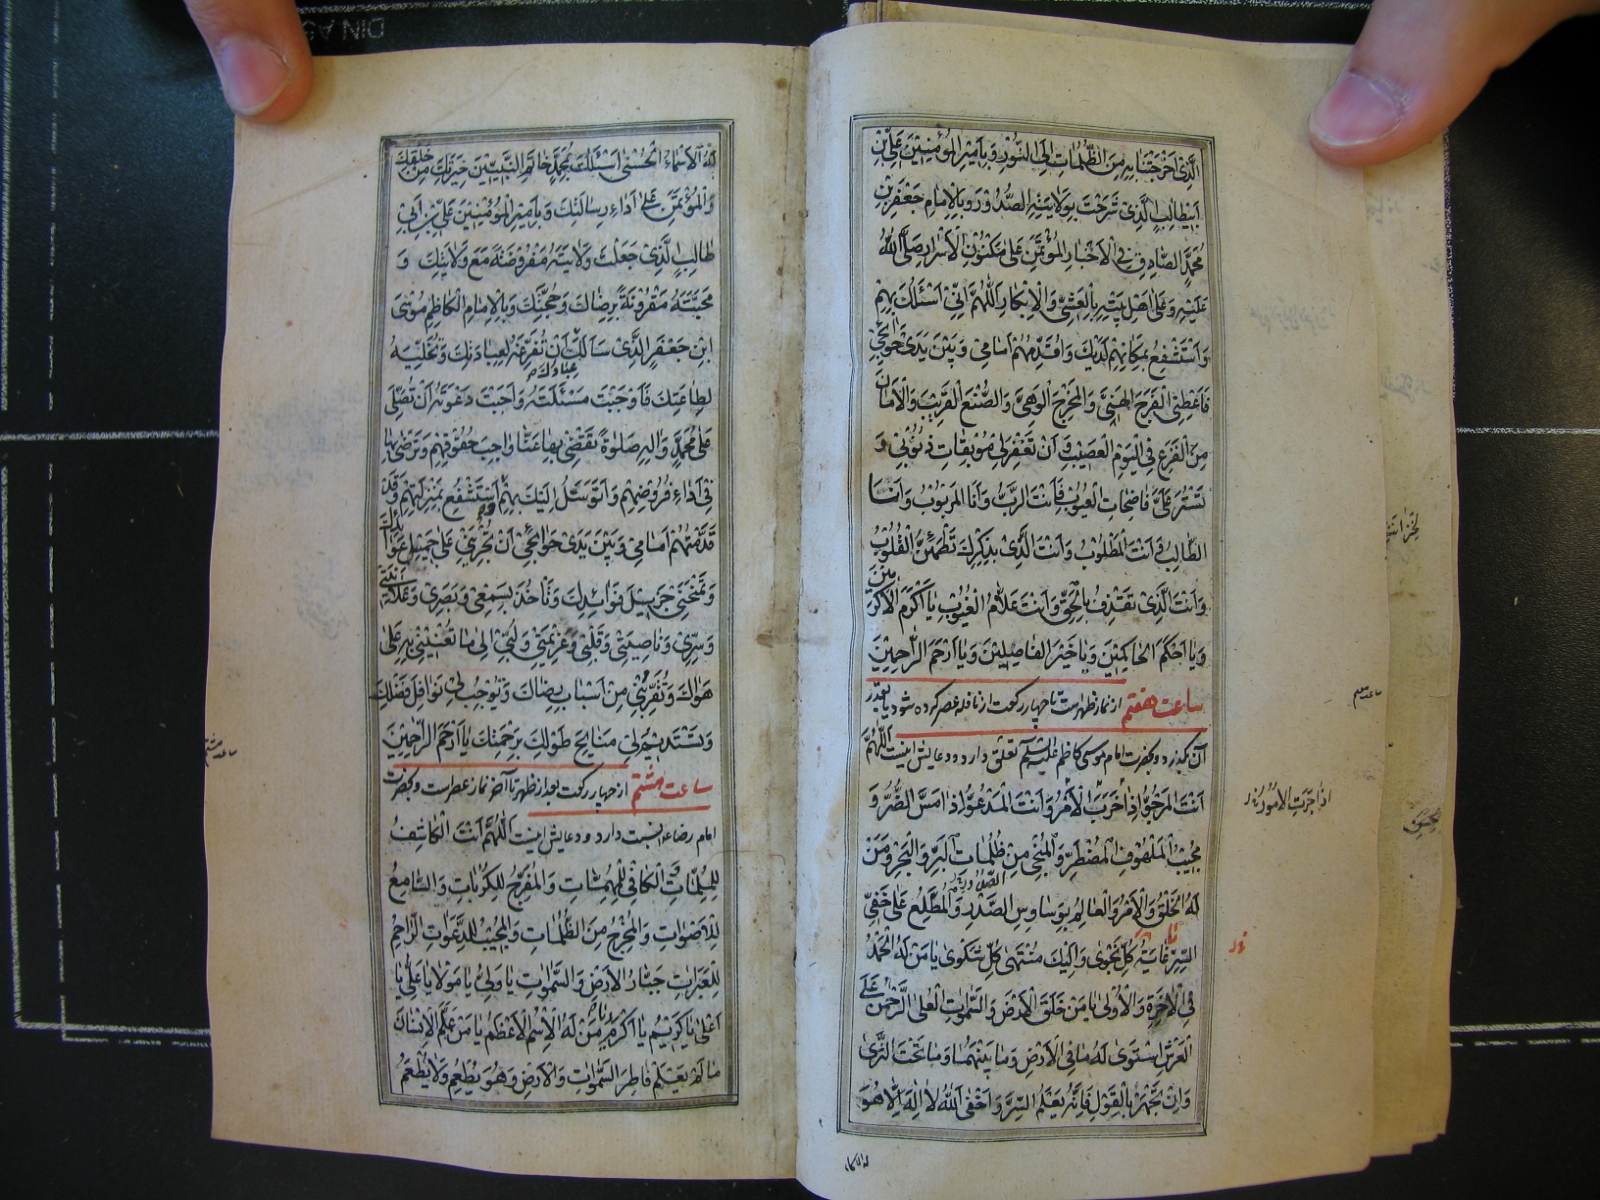 الَّذِی اَخْرَجْتَنا بِهِ مِنَ الظُّلُماتِ اِلَی النُّورِ وَ بِاَمِیرِ الْمُؤْمِنِینَ عَلِیِّ بْنِ
اَبِیطالِبٍ الَّذِی شَرَحْتَ بِوِلایَتِهِ الصُّدُورَ وَ بِالْاِمامِ جَعْفَرِ بْنِ
مُحَمَّدٍ الصّادِقِ فِی الْاَخْبارِ الْمُؤْتَمَنِ عَلی مَکْنُونِ الْاَسْرارِ صَلَّی اللهُ
عَلَیْهِ وَ عَلی اَهْلِ بَیْتِهِ بِالْعَشِیِّ وَ الْاِبْکارِ اَللّهُمَّ اِنِّی اَسْئَلُکَ بِهِمْ
وَ اَسْتَشْفِعُ بِمَکانِهِمْ لَدَیْکَ وَ اُقَدِّمُهُمْ اَمامِی وَ بَیْنَ یَدَیْ حَوائِجِی
فَاَعْطِنِی الْفَرَجَ الْهَنِیَّ وَ الْمَخْرَجَ الْوَحِیَّ وَ الصُّنْعَ الْقَرِیبَ وَ الْاَمانَ
مِنَ الْفَزَعِ فِی الْیَوْمِ الْعَصِیبِ وَ اَنْ تَغْفِرَ لِی مُوبِقاتِ ذُنُوبِی وَ
تَسْتُرَ عَلَیَّ فاضِحاتِ الْعُیُوبِ فَاَنْتَ الرَّبُّ وَ اَنَا الْمَرْبُوبُ وَ اَنَا
الطّالِبُ وَ اَنْتَ الْمَطْلُوبُ وَ اَنْتَ الَّذِی بِذِکْرِکَ تَطْمَئِنُّ الْقُلُوبُ
وَ اَنْتَ الَّذِی تَقْذِفُ بِالْحَقِّ وَ اَنْتَ عَلّامُ الْغُیُوبِ یا اَکْرَمَ الْاَکْرَمِینَ
وَ یا اَحْکَمَ الْحاکِمِینَ وَ یا خَیْرَ الْفاصِلِینَ وَ یا اَرْحَمَ الرّاحِمِینَ
ساعت هفتم از نماز ظهر است تا چهار رکعت از نافله عصر کرده شود یا بقدر
آن بگذرد و بحضرت امام موسی کاظم علیه السلام تعلق دارد و دعایش اینست اَللّهُمَّ
اَنْتَ الْمَرْجُوُّ اِذا حَزَبَ الْاَمْرُ وَ اَنْتَ الْمَدْعُوُّ اِذا مَسَّ الضُّرُّ وَ
مُجِیبُ الْمَلْهُوفِ الْمُضْطَرِّ وَ الْمُنْجِی مِنْ ظُلُماتِ الْبَرِّ وَ الْبَحْرِ وَ مَنْ
لَهُ الْخَلْقُ وَ الْاَمْرُ وَ الْعالِمُ بِوَساوِسِ الصَّدْرِ وَ الْمُطَّلِعُ عَلی خَفِیِّ
السِّرِّ غایَةُ کُلِّ نَجْوی وَ اِلَیْکَ مُنْتَهی کُلِّ شَکْوی یا مَنْ لَهُ الْحَمْدُ
فِی الْاخِرَةِ وَ الْاُولی یا مَنْ خَلَقَ الْاَرْضَ وَ السَّمواتِ الْعُلی الرَّحْمنُ عَلَی
الْعَرْشِ اسْتَوی لَهُ ما فِی الْاَرْضِ وَ ما بَیْنَهُما وَ ما تَحْتَ الثَّری
وَ اِنْ تَجْهَرْ بِالْقَوْلِ فَاِنَّهُ یَعْلَمُ السِّرَّ وَ اَخْفی اَللهُ لا اِلهَ اِلّا هُوَ
لَهُ الْاَسْماءُ الْحُسْنی اَسْئَلُکَ بِمُحَمَّدٍ خاتَمِ النَّبِیِّینَ خِیَرَتِکَ مِنْ خَلْقِکَ
وَ الْمُؤْتَمَنِ عَلی اَداءِ رِسالَتِکَ وَ بِاَمِیرِ الْمُؤْمِنِینَ عَلِیِّ بْنِ اَبِی
طالِبٍ الَّذِی جَعَلْتَ وِلایَتَهُ مَفْرُوضَةً مَعَ وِلایَتِکَ وَ
مَحَبَّتَهُ مَقْرُونَةً بِرِضاکَ وَ مَحَبَّتِکَ وَ بِالْاِمامِ الْکاظِمِ مُوسَی
ابْنِ جَعْفَرٍ الَّذِی سَاَلَکَ اَنْ تُفَرِّغَهُ لِعِبادَتِکَ وَ تُخَلِّیَهُ
لِطاعَتِکَ فَاَوْجَبْتَ مَسْئَلَتَهُ وَ اَجَبْتَ دَعْوَتَهُ اَنْ تُصَلِّیَ
عَلی مُحَمَّدٍ وَ الِهِ صَلوةً تَقْضِی بِها عَنّا واجِبَ حُقُوقِهِمْ وَ تَرْضی بِها
فِی اَداءِ فُرُوضِهِمْ وَ اَتَوَسَّلُ اِلَیْکَ بِهِمْ وَ اَسْتَشْفِعُ بِمَنْزِلَتِهِمْ وَ قَدْ
قَدَّمْتُهُمْ اَمامِی وَ بَیْنَ یَدَیْ حَوائِجِی اَنْ تُجْرِیَنِی عَلی جَمِیلِ عَوائِدِکَ
وَ تَمْنَحَنِی جَزِیلَ فَوائِدِکَ وَ تَأْخُذَ بِسَمْعِی وَ بَصَرِی وَ عَلانِیَتِی
وَ سِرِّی وَ ناصِیَتِی وَ قَلْبِی وَ عَزِیمَتِی وَ لُبِّی اِلی ما تُعِینُنِی بِهِ عَلی
هَواکَ وَ تُقَرِّبُنِی مِنْ اَسْبابِ رِضاکَ وَ تُوجِبُ لِی نَوافِلَ فَضْلِکَ
وَ تَسْتَدِیمُ لِی مَنایِحَ طَوْلِکَ بِرَحْمَتِکَ یا اَرْحَمَ الرّاحِمِینَ
ساعت هشتم از چهار رکعت بعد از ظهر تا آخر نماز عصر است و بحضرت
امام رضا نسبت دارد و دعایش اینست اَللّهُمَّ اَنْتَ الْکاشِفُ
لِلْمُلِمّاتِ وَ الْکافِی لِلْمُهِمّاتِ وَ الْمُفَرِّجُ لِلْکُرُباتِ وَ السّامِعُ
لِلْاَصْواتِ وَ الْمُخْرِجُ مِنَ الظُّلُماتِ وَ الْمُجِیبُ لِلدَّعَواتِ الرّاحِمُ
لِلْعَبَراتِ جَبّارُ الْاَرْضِ وَ السَّمواتِ یا وَلِیُّ یا مَوْلی یا عَلِیُّ یا
اَعْلی یا کَرِیمُ یا اَکْرَمُ یا مَنْ لَهُ الْاِسْمُ الْاَعْظَمُ یا مَنْ عَلَّمَ الْاِنْسانَ
ما لَمْ یَعْلَمْ فاطِرَ السَّمواتِ وَ الْاَرْضِ وَ هُوَ یُطْعِمُ وَ لا یُطْعَمُ